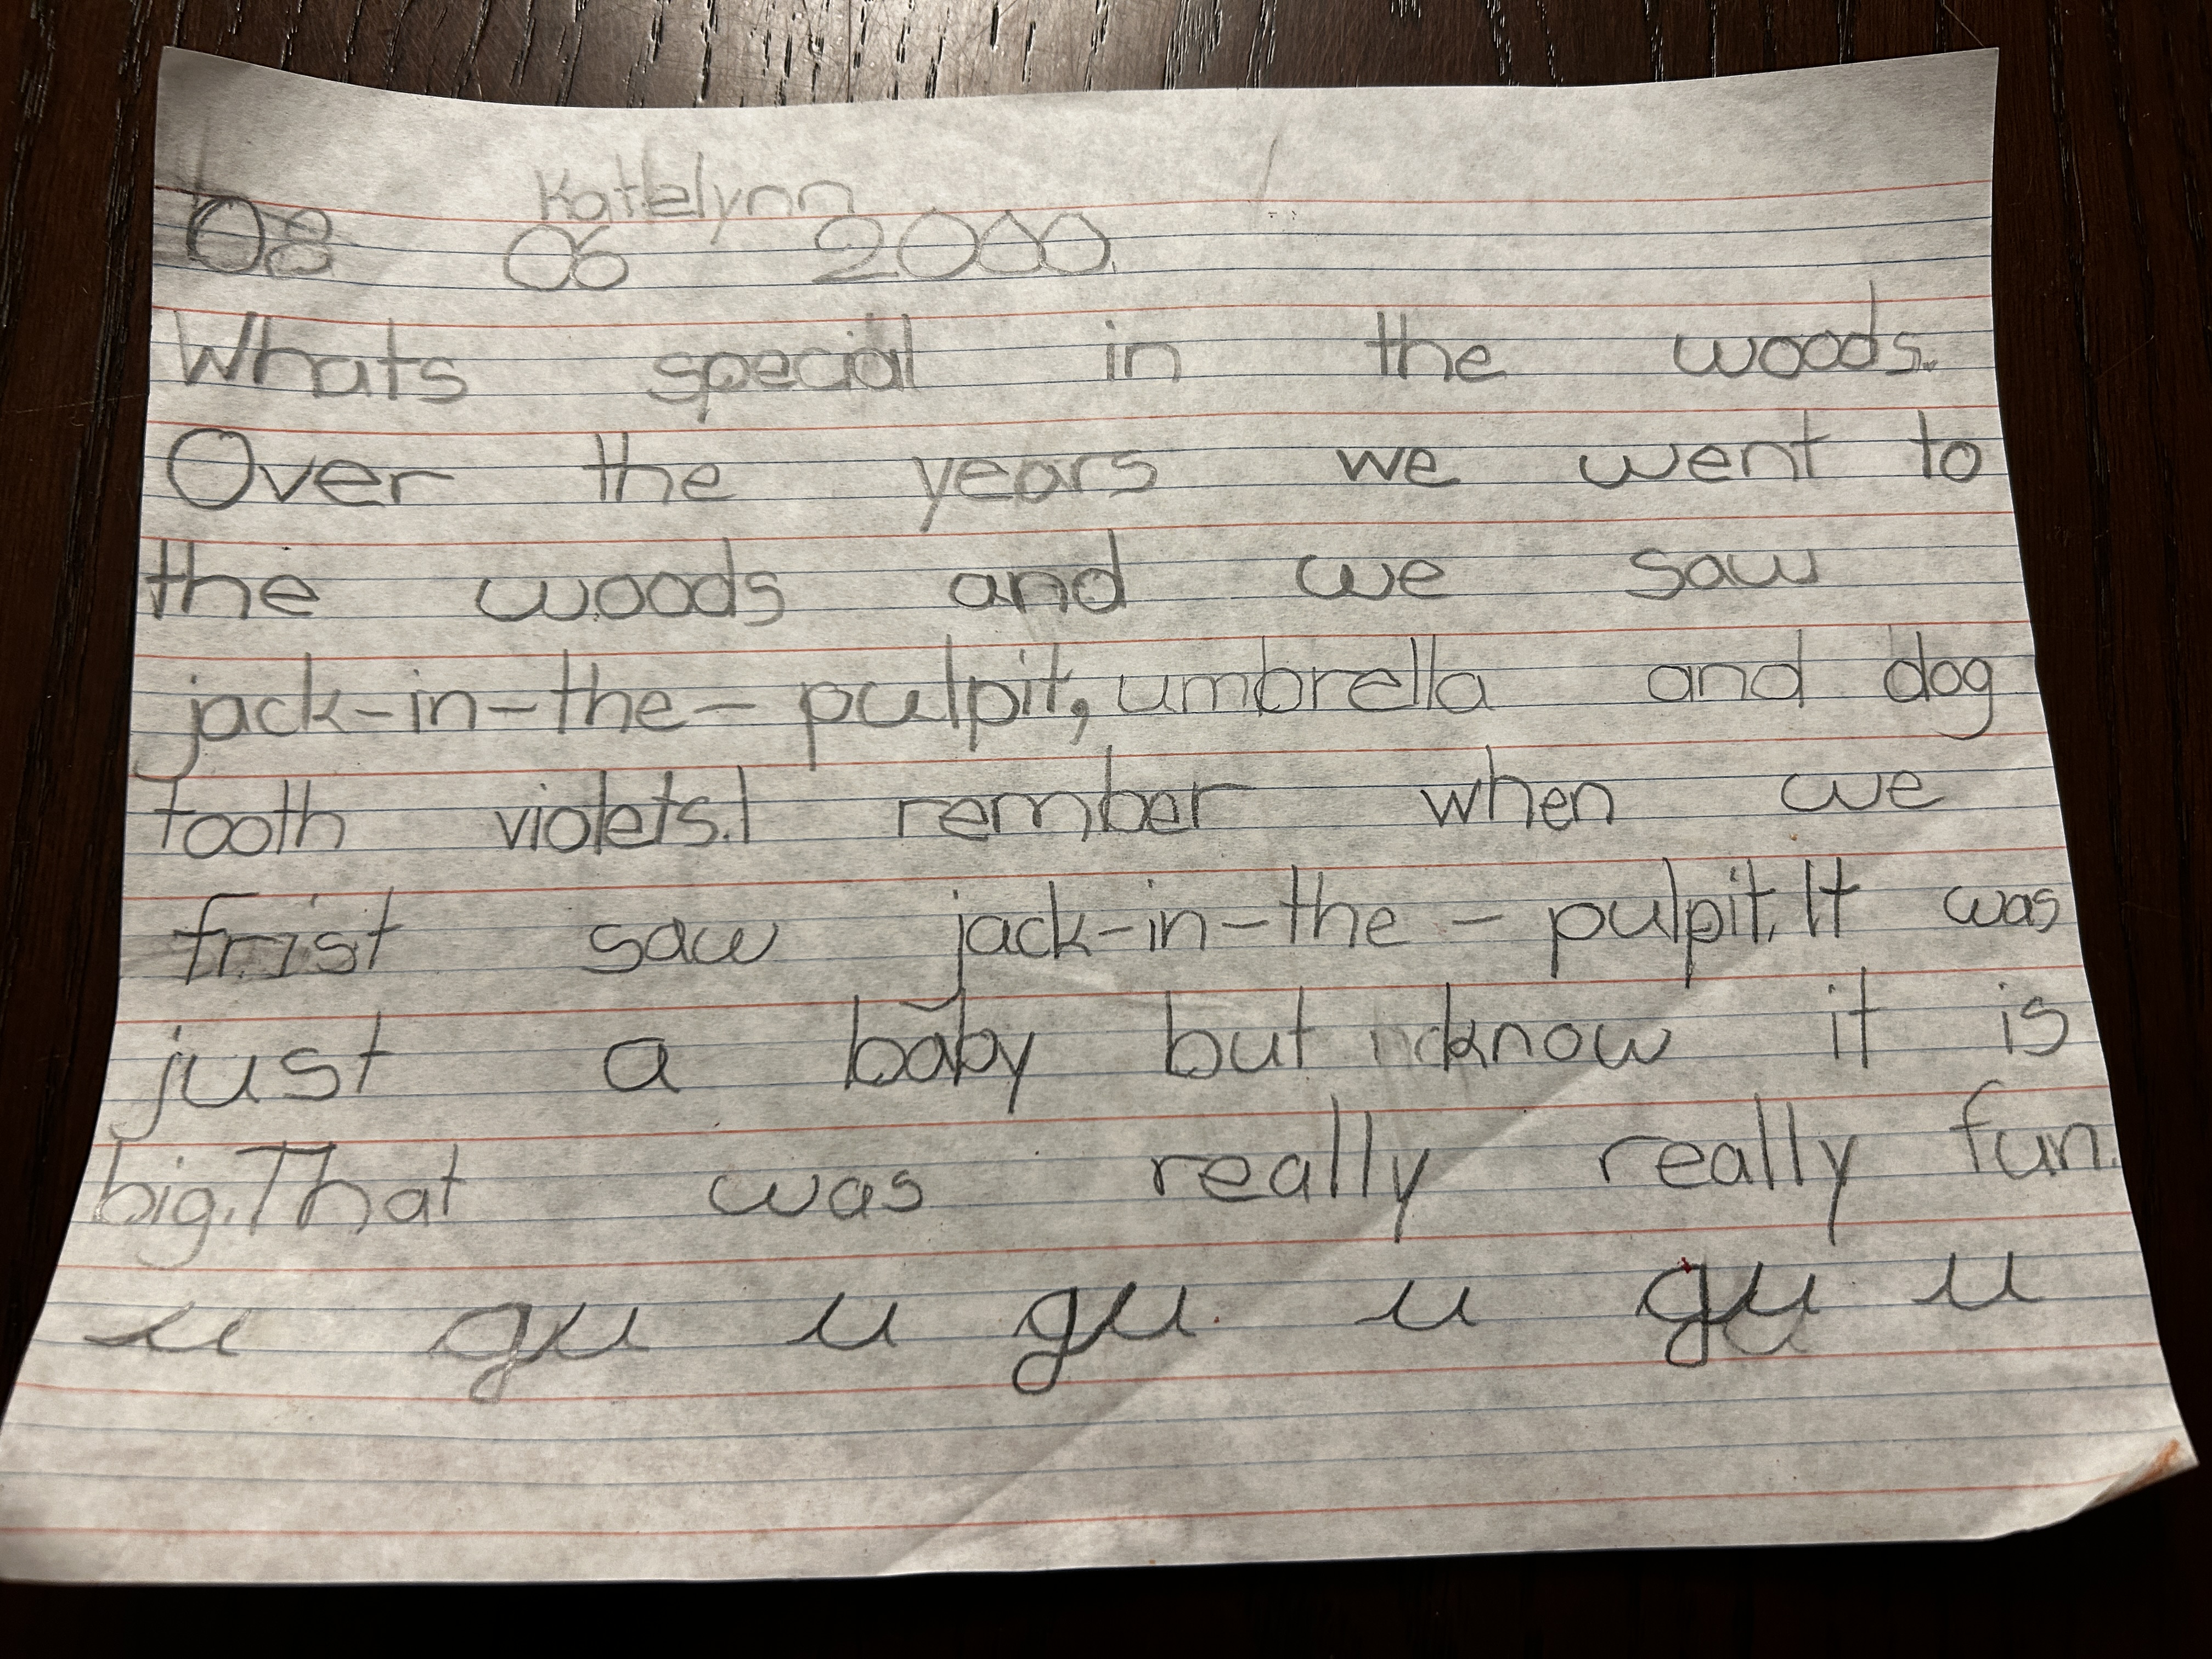 Katlelynn
08 06 2000
Whats special in the woods.
Over the years we went to
the woods and we saw
jack-in-the-pulpit, umbrella and dog
tooth violets. I rember when we
frist saw jack-in-the-pulpit. It was
just a baby but know it is
big. That was really really fun.
u gu u gu u gu u